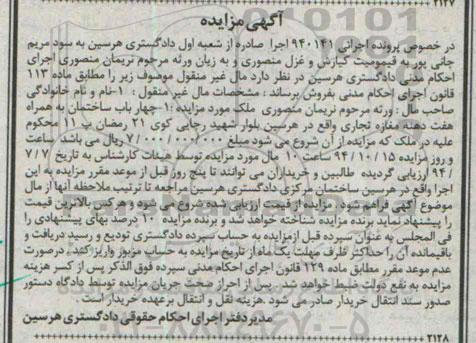 ۲۱۲۷
آگهی مزایده
در خصوص پرونده اجرائی ۹۴۰۱۴۱ اجرا صادره از شعبه اول دادگستری هرسین به سود مریم
جانی پور به قیمومیت کیارش و غزل منصوری و به زیان ورثه مرحوم نریمان منصوری اجرای
احکام مدنی دادگستری هرسین در نظر دارد مال غیر منقول موصوف زیر را مطابق ماده ۱۱۳
قانون اجرای احکام مدنی بفروش برساند : مشخصات مال غیر منقول : ۱-نام و نام خانوادگی
صاحب مال : ورثه مرحوم نریمان منصوری ملک مورد مزایده :۱- چهار باب ساختمان به همراه
هفت دهنه مغازه تجاری واقع در هرسین بلوار شهید رجایی کوی ۲۱ رمضان پ ۱۱ محکوم
علیه در ملک که مزایده از آن شروع می شود مبلغ ۷/۰۰۰/۰۰۰/۰۰۰ ریال می باشد. ساعت
و روز مزایده ۹۴/۱۰/۱۵ ساعت ۱۰ مال مورد مزایده توسط هیئات کارشناس به تاریخ ۷/۷
/۹۴ ارزیابی گردیده طالبین و خریداران می توانند تا پنج روز قبل از موعد مقرر مزایده به این
اجرا واقع در هرسین ساختمان مرکزی دادگستری هرسین مراجعه تا ترتیب ملاحظه آنها از مال
موضوع آگهی فراهم شود . مزایده از قیمت ارزیابی شده شروع می شود و هرکس بالاترین قیمت
را پیشنهاد نماید برنده مزایده شناخته خواهد شد و برنده مزایده ۱۰ درصد بهای پیشنهادی را
فی المجلس به عنوان سپرده قبل ازمزایده به حساب سپرده دادگستری تودیع و رسید دریافت و
باقیمانده آن را حداکثر ظرف مهلت یک ماه از تاریخ مزایده به حساب مزبور واریز کند . درصورت
عدم موعد مقرر مطابق ماده ۲۲۹ قانون اجرای احکام مدنی سپرده فوق الذکر پس از کسر هزینه
مزایده به نفع دولت ضبط خواهد شد. پس از احراز صحت جریان مزایده توسط دادگاه دستور
صدور سند انتقال خریدار صادر می شود .هزینه نقل و انتقال برعهده خریدار است .
مدیر دفتر اجرای احکام حقوقی دادگستری هرسین
۲۱۲۸